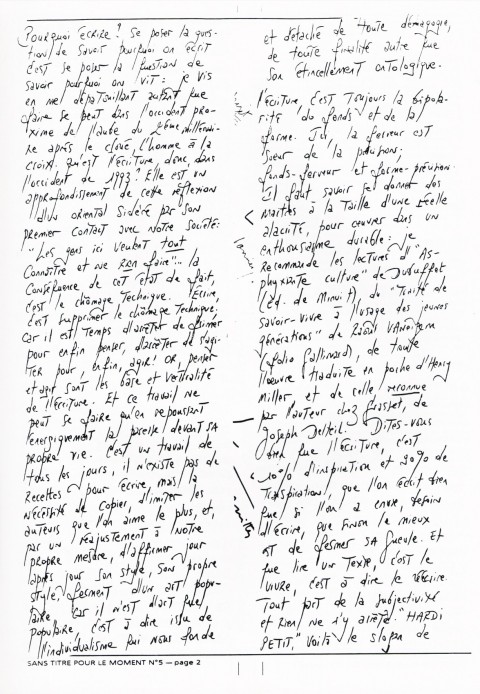 Pourquoi écrire? Se poser la ques-
tion de savoir pourquoi on écrit
c'est se poser la question de
savoir pourquoi on vit: je vis
en me dépatouillant autant que
faire se peut dans l'occident pro-
xime de l'aube du 3ème milléni-
re après le cloué, l'homme à la
croix. Qu'est l'écriture, donc, dans
l'occident de 1993? Elle est un
approfondissement de cette réflexion
d'un oriental sidéré par son
premier contact avec notre société:
"Les gens ici veulent tout
connaître et ne rien faire"... la
conséquence de cet état de fait,
c'est le chômage technique. Écrire,
c'est supprimer le chômage technique.
Car il est temps d'arrêter de
pour enfin penser, d'arrêter de s'agi-
ter pour, enfin, agir! Or, penser
et agir sont les base et vertébralité
de l'écriture. Et ce travail ne
peut se faire qu'en repoussant
énergiquement la paresse devant SA
propre vie. C'est un travail de
tous les jours, il n'existe pas de
recettes pour écrire, mais la
nécessité de copier, d'imiter les
auteurs que l'on aime le plus, et,
par un réajustement à notre
propre mesure, d'affirmer jour
après jour son style, son propre
style, ferment d'un art popu-
laire. Car il n'est d'art que
populaire, c'est à dire issu de
l'individualisme qui nous fonde
et détaché de toute démagogie,
de toute finalité autre que
son étincellement ontologique.
l'écriture, c'est toujours la bipola-
rité du fonds et de la
forme. Ici, la ferveur est
soeur de la précision.
fonds-ferveur et forme-précision.
Il faut savoir se donner des
maîtres à la taille d'une réelle
alacrité, pour oeuvrer dans un
enthousiasme durable: je
recommande les lectures d'"As-
phyxiante culture" de Dubuffet
(Ed. de Minuit), du "Traité de
savoir-vivre à l'usage des jeunes
générations" de Raoul Vaneigem
(folio Gallimard), de toute
l'oeuvre traduite en poche d'Henry
Miller, et de celle reconnue
par l'auteur chez Grasset, de
Joseph Delteil. Dites-vous
bien que l'écriture, c'est
10% d'inspiration et 90% de
transpiration, que l'on écrit bien
que si l'on a envie, besoin
d'écrire, que sinon le mieux
est de fermer SA gueule. Et
que lire un texte, c'est le
vivre, c'est à dire le réécrire.
Tout part de la subjectivité
et rien ne s'y arrête. "HARDI
PETIT," voilà le slogan de
SANS TITRE POUR LE MOMENT N°5 — page 2